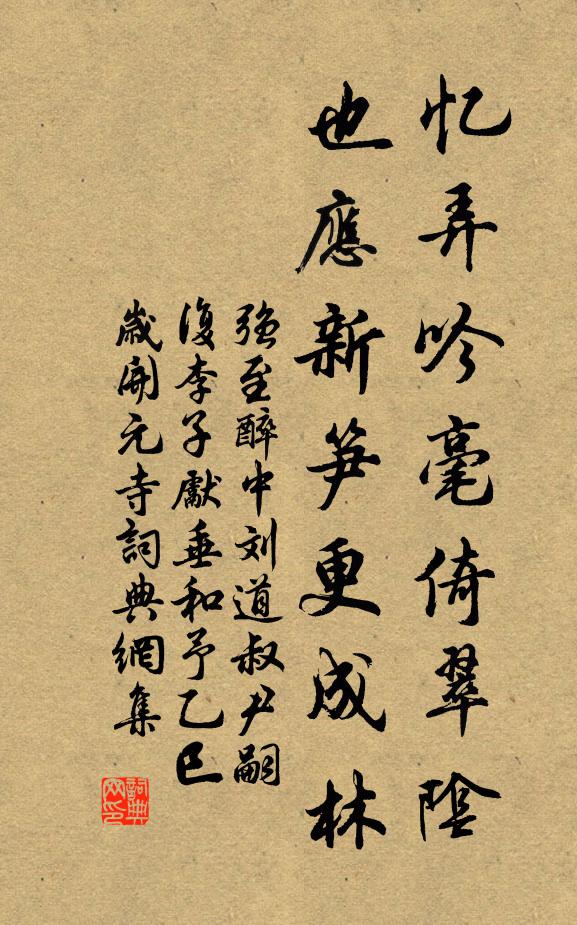 忆弄吟毫倚翠阴
也應新笋更成林
强至醉中刘道叔尹嗣
復李子獻垂和予乙巳
歲開元寺詞典網集
詞典網印